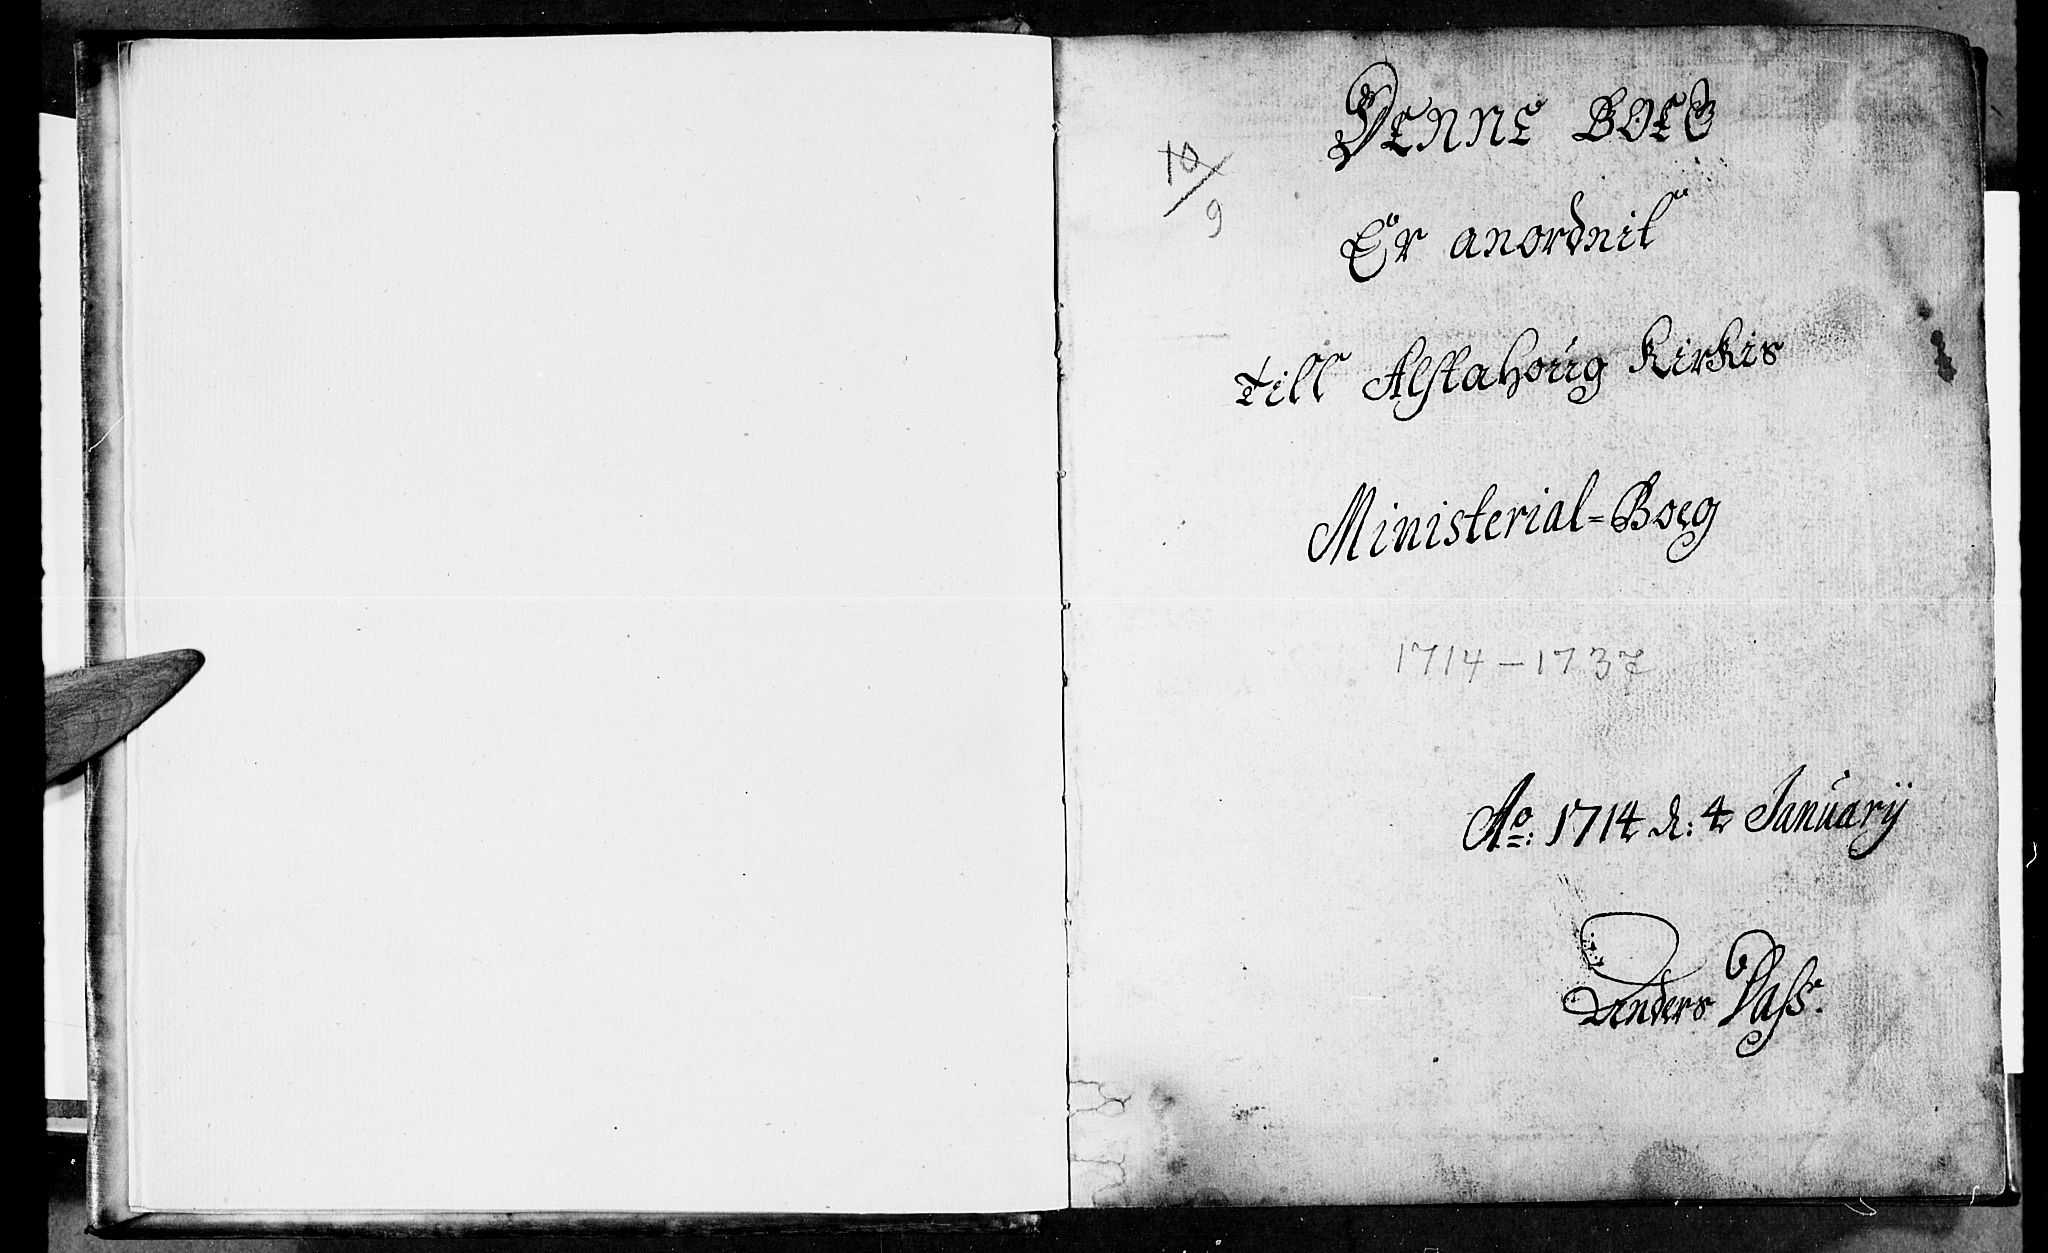 10/9
Denne Boeg
Er anordnit
till Alstahoŭg Kirkis
Ministerial=Boeg
1714-1737
Ao: 1714 d: 4 Janŭarij
Anders Dass.